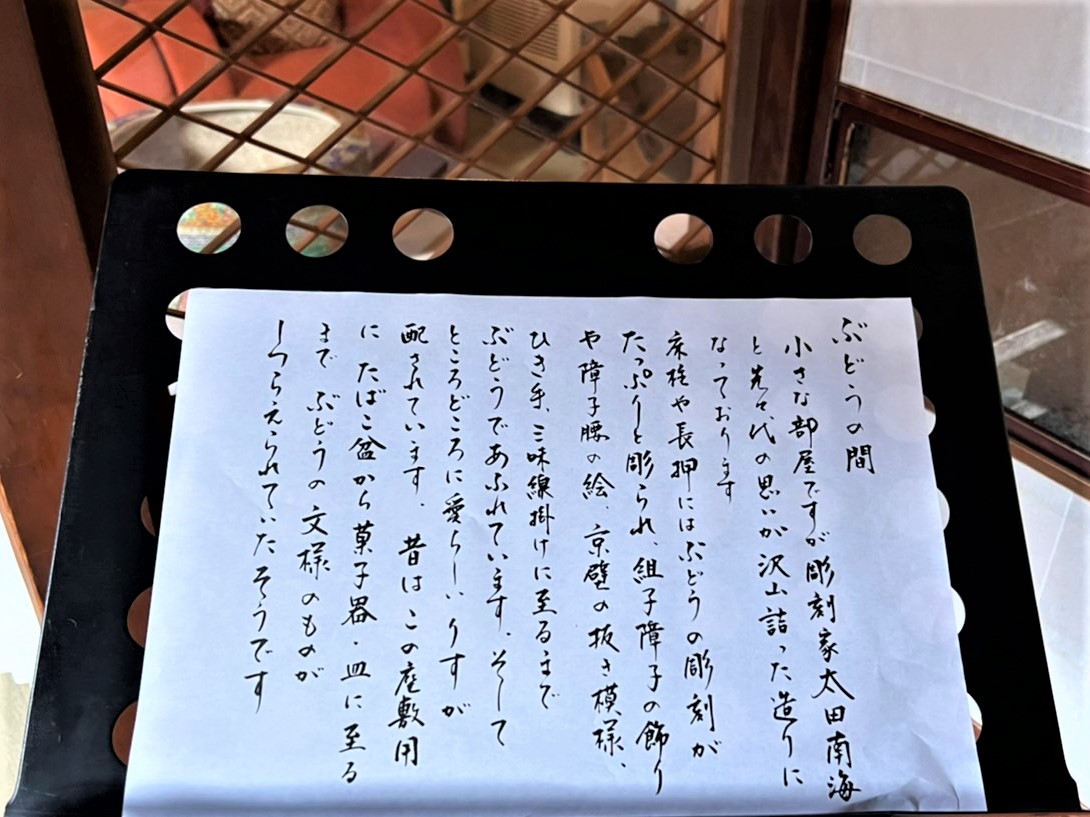 ぶどうの間
小さな部屋ですが彫刻家太田南海
と先々代の思いが沢山詰った造りに
なっております
床柱や長押にはぶどうの彫刻が
たっぷりと彫られ、組子障子の飾り
や障子腰の絵、京壁の抜き模様、
ひき手、三味線掛けに至るまで
ぶどうであふれています。そして
ところどころに愛らしいりすが
配されています。昔はこの座敷用
に たばこ盆から菓子器・皿に至る
まで ぶどうの文様のものが
しつらえられていたそうです